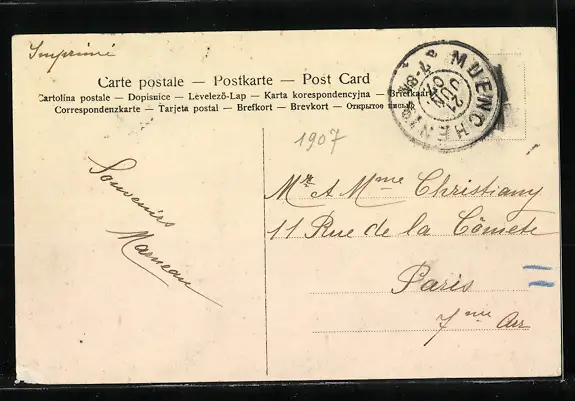 Imprimé
Carte postale — Postkarte — Post Card
Cartolina postale — Dopisnice — Levelező-Lap — Karta korespondencyjna — Briefkaart
Correspondenzkarte — Tarjeta postal — Brefkort — Brevkort — Открытое письмо
MUENCHEN
21
JUN
1907
Souvenirs
Marneau
Mr et Mme Christiany
11 Rue de la Comète
Paris
7me Arr